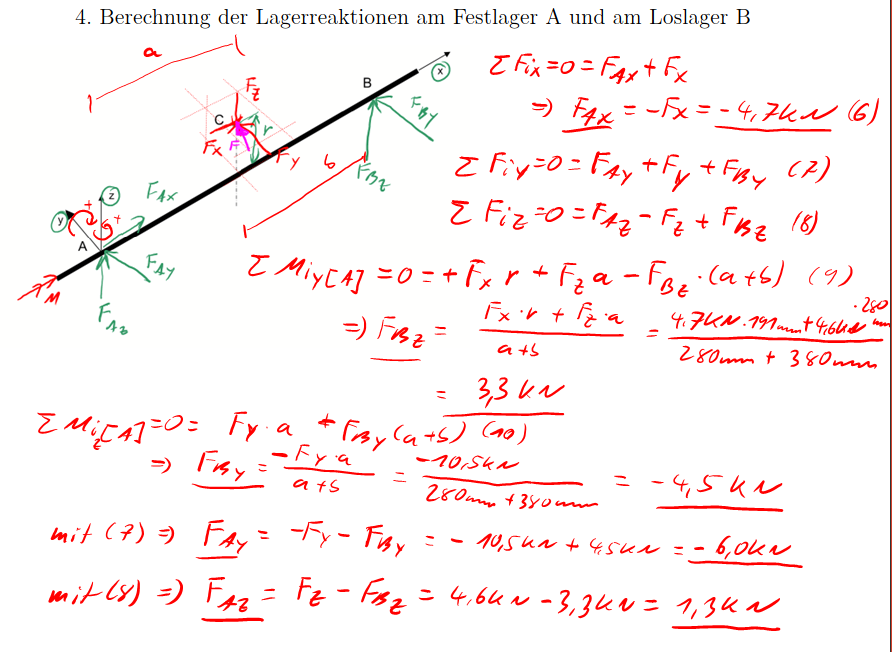 4. Berechnung der Lagerreaktionen am Festlager A und am Loslager B
a
x
B
F_z
F_By
C
r
F_x F
F_y
b
F_Bz
z
F_Ax
y
+
+
A
F_Ay
M
F_Az
Σ F_ix = 0 = F_Ax + F_x
⇒ F_Ax = -F_x = -4,7kN (6)
Σ F_iy = 0 = F_Ay + F_y + F_By (7)
Σ F_iz = 0 = F_Az - F_z + F_Bz (8)
Σ M_iy[A] = 0 = + F_x r + F_z a - F_Bz · (a+b) (9)
⇒ F_Bz = (F_x · r + F_z · a) / (a+b) = (4,7kN · 191mm + 4,6kN · 280mm) / (280mm + 380mm)
= 3,3 kN
Σ M_iz[A] = 0 = F_y · a + F_By (a+b) (10)
⇒ F_By = (-F_y · a) / (a+b) = (-10,5kN) / (280mm + 380mm) = -4,5 kN
mit (7) ⇒ F_Ay = -F_y - F_By = - 10,5kN + 4,5kN = - 6,0kN
mit (8) ⇒ F_Az = F_z - F_Bz = 4,6kN - 3,3kN = 1,3kN